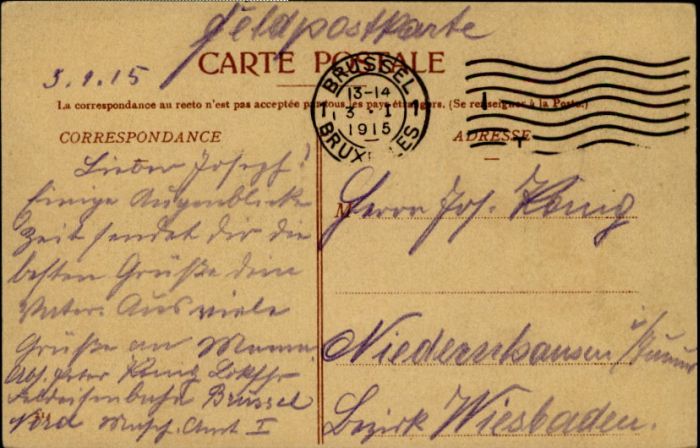 Feldpostkarte
CARTE POSTALE
3.1.15
BRUSSEL
13-14
1 3 · I 1
1915
BRUXELLES
La correspondance au recto n'est pas acceptée par tous les pays étrangers. (Se renseigner à la Poste.)
CORRESPONDANCE
ADRESSE
Lieber Joseph!
Einige Augenblicke
Zeit sendet dir die
besten Grüße dein
Vater. Auch viele
Grüße an Mama
Abs. Peter König Lokfhr
Feldeisenbahn Brüssel
Nord Masch. Amt I
M Herrn Jos. König
Niedernhausen i/Taunus
Bezirk Wiesbaden.